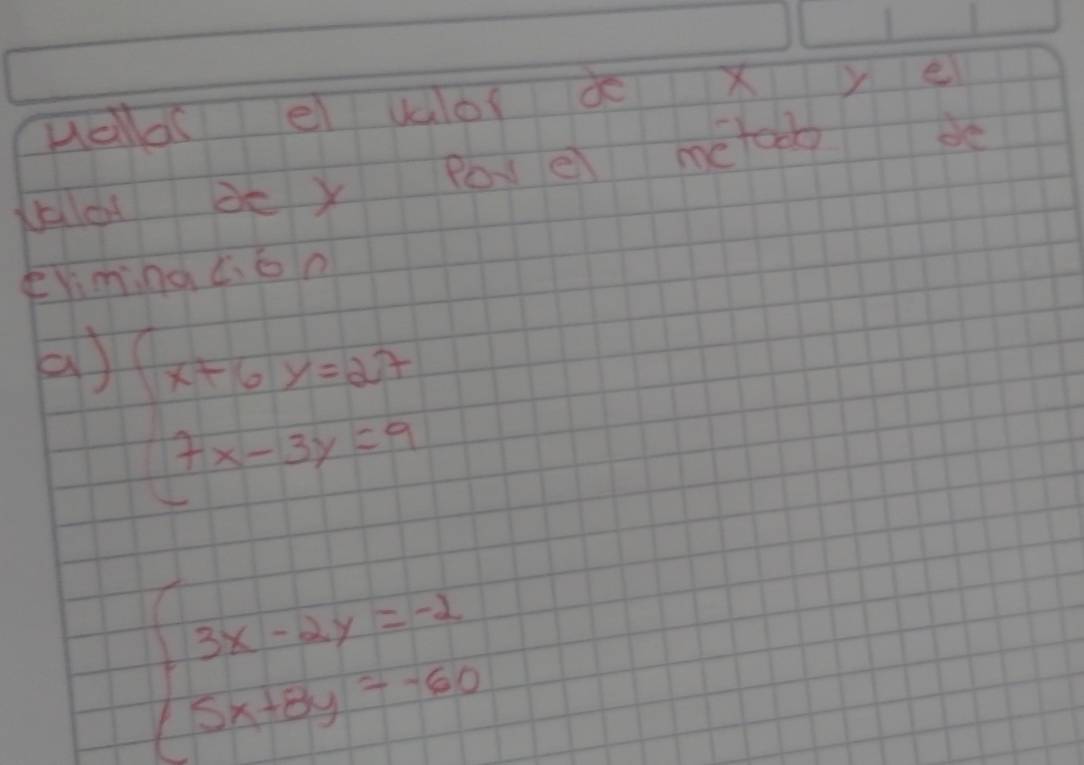 Hallar el valor de x y el
valor de y por el metodo de
eliminación
a) { x + 6y = 27
7x - 3y = 9
{ 3x - 2y = -2
5x + 8y = -60